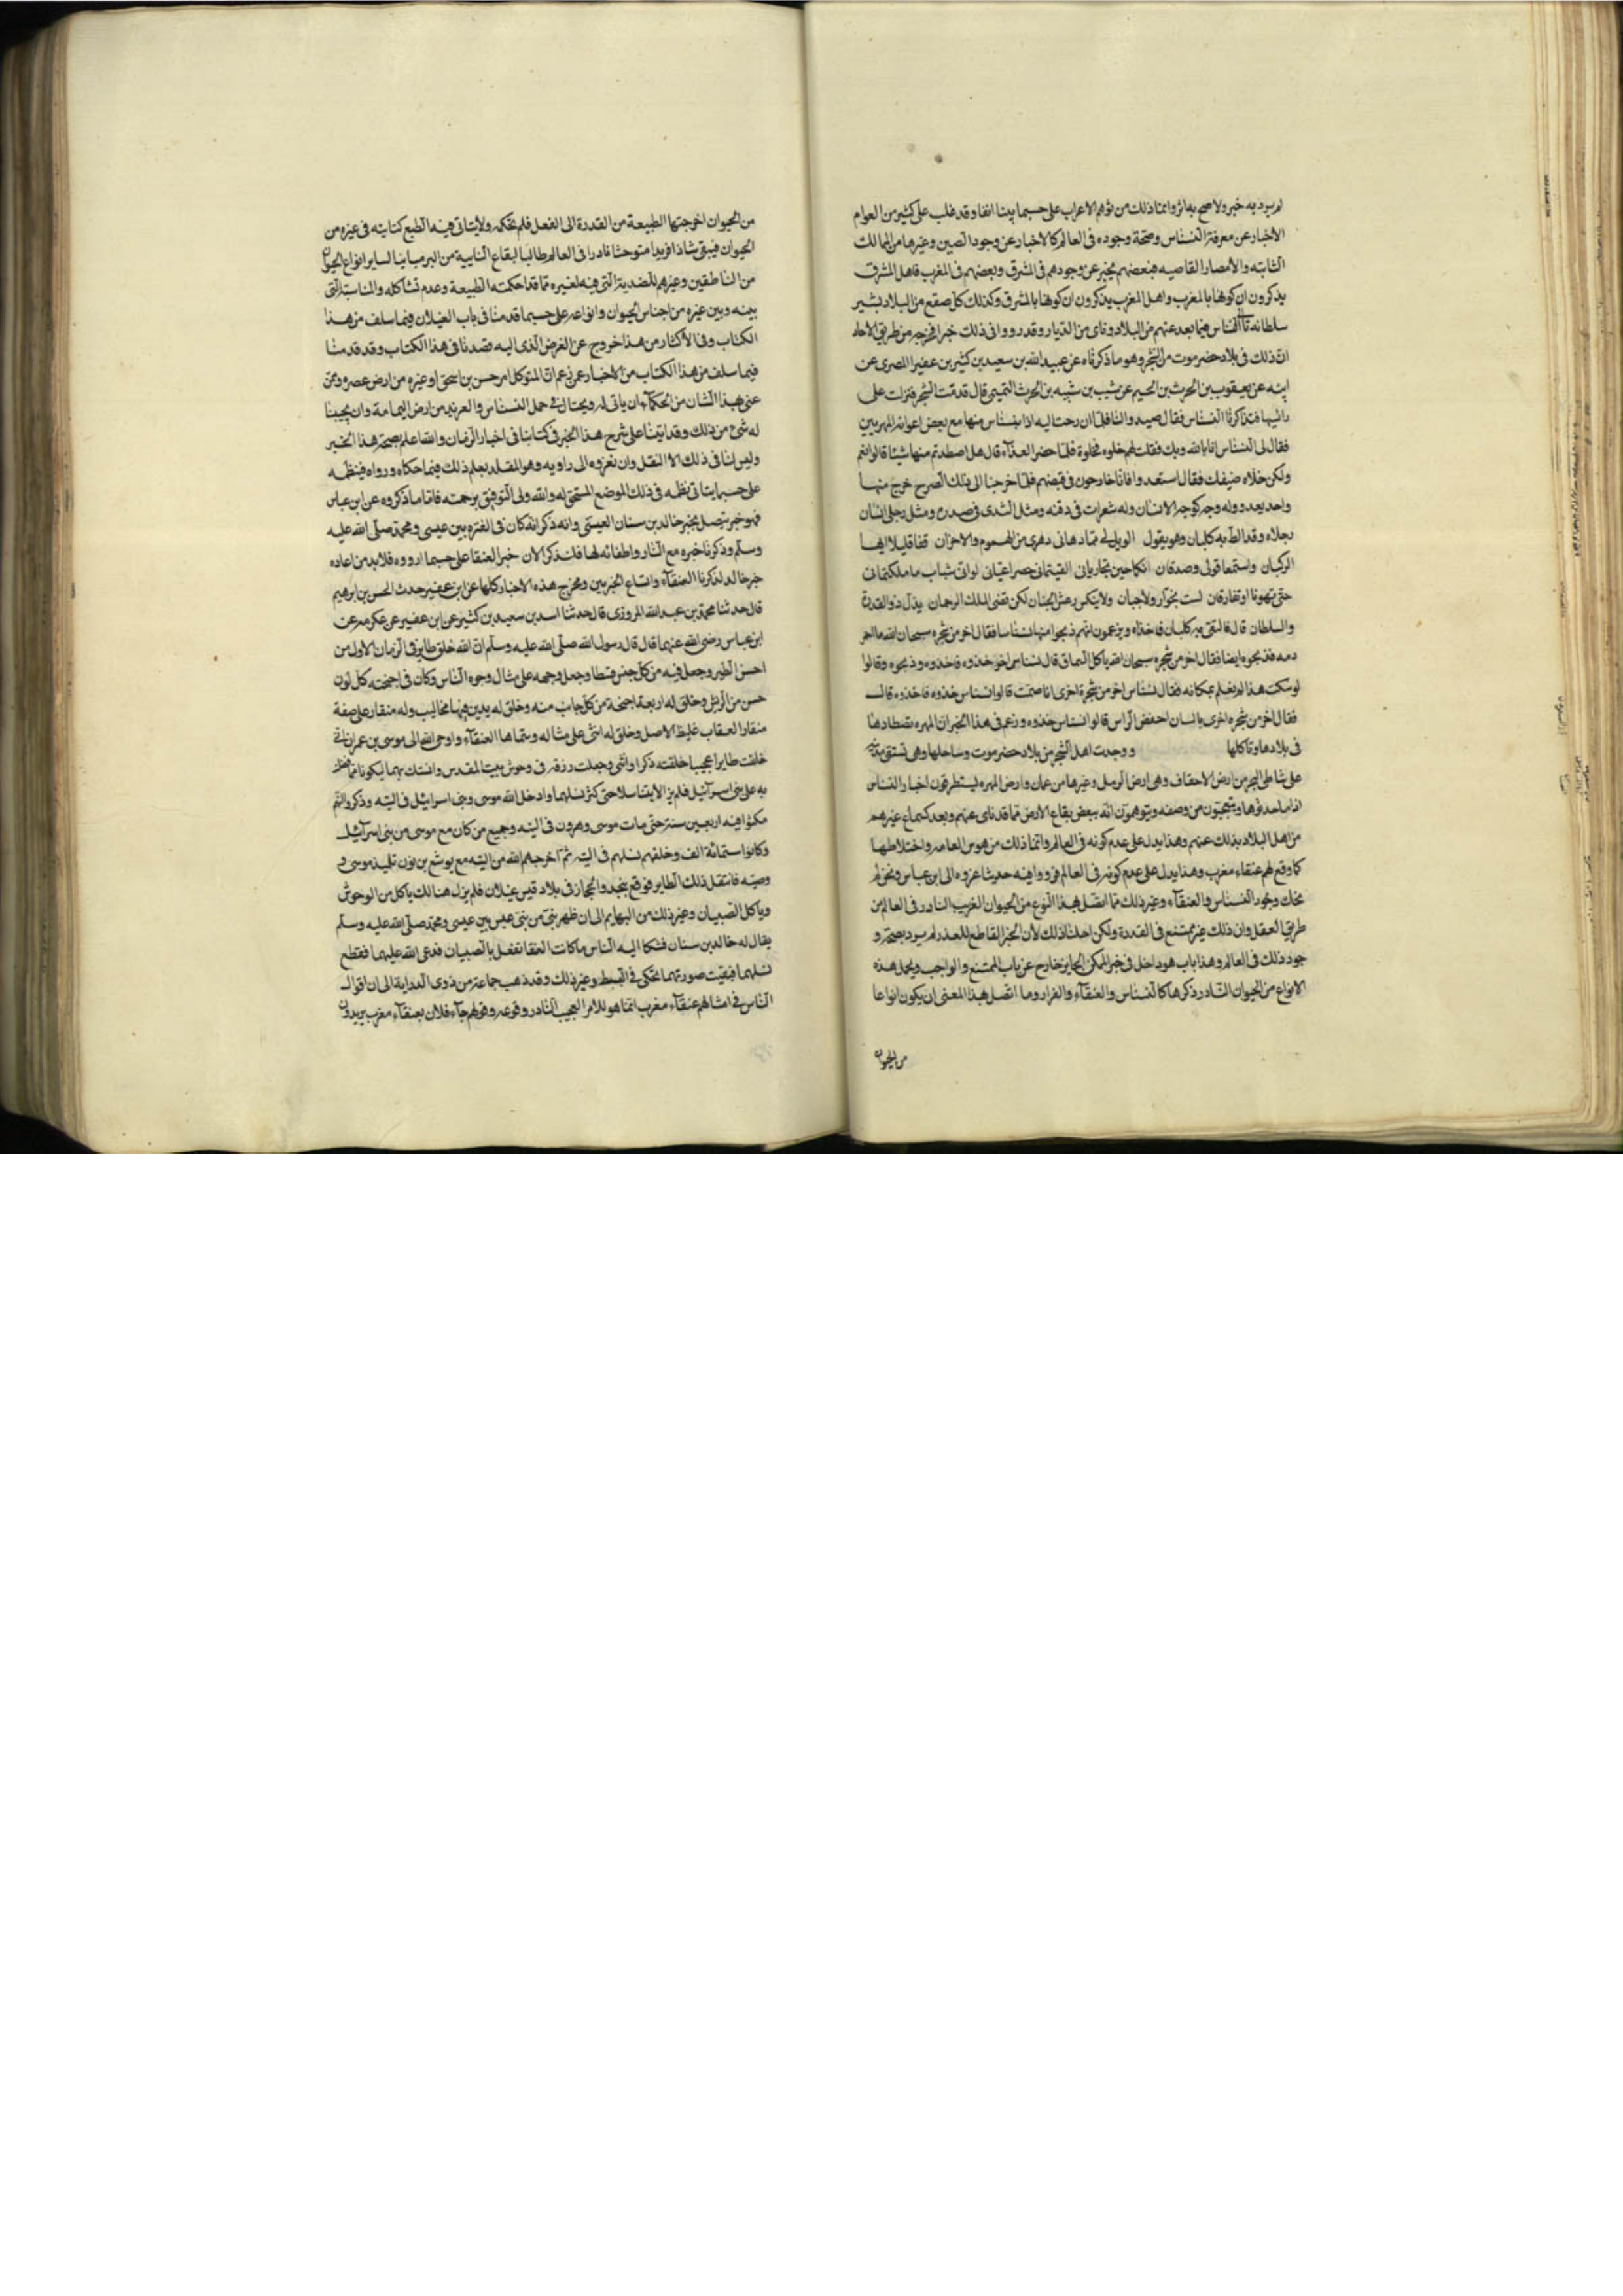 لم يرد به خبر ولا صح به اثر وانما ذلك من توهم الاعراب على حسبما بينا انفا وقد غلب على كثير من العوام
الاخبار عن معرفة النسناس وصحة وجوده فى العالم كالاخبار عن وجود الصين وغيرها من الممالك
الثابته والامصار القاصيه فبعضهم يخبر عن وجودهم فى المشرق وبعضهم فى المغرب فاهل المشرق
يذكرون ان كونها بالمغرب واهل المغرب يذكرون ان كونها بالمشرق وكذلك كل صقع من البلاد يشير
سلطانه ان النسناس فيما بعد عنهم من البلاد ونأى من الديار وقد رووا فى ذلك خبرا مخرجه من طريق الاحاد
ان ذلك فى بلاد حضرموت من الشحر وهو ما ذكرناه عن عبيد الله بن سعيد بن كثير بن عفير المصرى عن
ابيه عن يعقوب بن الحرث بن عن شبيب بن شيبه بن الحرث التميمى قال قدمت الشحر فنزلت على
رائيها فتذاكرنا النسناس فقال صيدوا لنا فلما ان رحت اليه اذا بنسناس منها مع بعض اعوانه المهريين
فقال لى النسناس انا بالله وبك فقلت لهم خلوه فخلوه فلما حضر الغذاء قال هل اصطدتم منها شيئا قالوا نعم
ولكن خلاه ضيفك فقال استعدوا فانا خارجون فى قنصهم فلما خرجنا الى ذلك خرج منها
واحد يعدو وله وجه كوجه الانسان وله شعرات فى ذقنه ومثل الثدى فى صدره ومثل رجلى انسان
رجلاه وقد الظ به كلبان وهو يقول الويل لى مما دهانى دهرى من الهموم والاحزان قفا قليلا ايها
الركبان واستمعا قولى وصدقان انكما حين تحاربانى الفيتمانى حصرا عنيانى لو انى شباب ما ملكتمانى
حتى تموتا او تفارقان لست بخوار ولا جبان ولا ينكس رعش الجنان لكن قضى الملك الرحمان يذل ذو القدرة
والسلطان قال فالتقى به كلبان فاخذاه ويزعمون انهم ذبحوا منها نسناسا فقال اخر من شجره سبحان الله ما احمر
دمه فذبحوه ايضا فقال اخر من شجره سبحان الله ياكل السماق قال نسناس اخر خذوه فاخذوه وذبحوه وقالوا
لو سكت هذا لم نعلم بمكانه فقال نسناس اخر من شجرة اخرى انا صمت قالوا نسناس خذوه فاخذوه قال
فقال اخر من شجره اخرى يا لسان احفظ الراس قالوا نسناس خذوه وزعم فى هذا الخبر ان المهره تصطادها
فى بلادها وتاكلها ووجدت اهل الشحر من بلاد حضرموت وساحلها وهى
على شاطى البحر من ارض الاحقاف وهى ارض الرمل وغيرها من عمان وارض المهره يستطرفون اخبار النسناس
اذا ما حدثوها ويتعجبون من وصفه ويتوهمون انه ببعض بقاع الارض مما قد ناى عنهم وبعد كسماع غيرهم
من اهل البلاد بذلك عنهم وهذا يدل على عدم كونه فى العالم وانما ذلك من هوس العامه واختلاطها
كما وقع لهم عنقاء مغرب وهذا يدل على عدم كونه فى العالم فرووا فيه حديثا عزوه الى ابن عباس ونحن لم
نحل وجود النسناس والعنقاء وغير ذلك مما اتصل بهذا النوع من الحيوان الغريب النادر فى العالم من
طريق العقل وان ذلك غير ممتنع فى القدرة ولكن احلنا ذلك لأن الخبر القاطع للعذر لم يرد بصحة و
جود ذلك فى العالم وهذا باب هو داخل فى خبر الممكن الجايز خارج عن باب الممتنع والواجب ويحتمل هذه
الانواع من الحيوان النادر ذكرها كالنسناس والعنقاء والعرار وما اتصل بهذا المعنى ان يكون انواعا
من الحيوان
من الحيوان اخرجتها الطبيعة من القدرة الى الفعل فلم تحكمه ولا يتاتى فيه الطبع كتاتيه فى غيره من
الحيوان فيبقى شاذا فريدا متوحشا نادرا فى العالم طالبا لبقاع النايية من البر مباينا لساير انواع الحيوان
من الناطقين وغيرهم للضدية التى فيه لغيره مما قد احكمته الطبيعة وعدم تشاكله والمناسبة التى
بينه وبين غيره من اجناس الحيوان وانواعه على حسبما قدمنا فى باب الغيلان فيما سلف من هذا
الكتاب وفى الأكثار من هذا خروج عن الغرض الذى اليه قصدنا فى هذا الكتاب وقد قدمنا
فيما سلف من هذا الكتاب من الاخبار عمن زعم ان المتوكل امر حسن بن اسحق او غيره من ارض عصره وممن
عنى بهذا الشان من الحكماء ان ياتى له ويحتال فى حمل النسناس والعربد من ارض اليمامة وان يجيبنا
له شئ من ذلك وقد اتينا على شرح هذا الخبر فى كتابنا فى اخبار الزمان والله اعلم بصحة هذا الخبر
وليس لنا فى ذلك الا النقل وان نعزوه الى راويه وهو المقلد بعلم ذلك فيما حكاه ورواه فينظمه
على حسبما يتاتى نظمه فى ذلك الموضع المستحق له والله ولى التوفيق برحمته فاما ما ذكروه عن ابن عباس
فهو خبر يتصل بخبر خالد بن سنان العبسى وانه ذكر انه كان فى الفتره بين عيسى ومحمد صلى الله عليه
وسلم وذكرنا خبره مع النار واطفائه لها فلنذكر الان خبر العنقا على حسبما رووه فلا بد من اعاده
خبر خالد لذكرنا العنقاء واتساع الخبرين ومخرج هذه الاخبار كلها عن ابن عفير حدث الحسن بن ابرهيم
قال حدثنا محمد بن عبد الله المروزى قال حدثنا اسد بن سعيد بن كثير عن ابن عفير عن عكرمه عن
ابن عباس رضى الله عنهما قال قال رسول الله صلى الله عليه وسلم ان الله خلق طايرا فى الزمان الاول من
احسن الطير وجعل فيه من كل جنس قسطا وجعل وجهه على مثال وجوه الناس وكان فى اجنحته كل لون
حسن من الريش وخلق له اربعة اجنحة من كل جانب منه وخلق له يدين فيهما مخاليب وله منقار على صفة
منقار العقاب غليظ الاصل وخلق له انثى على مثاله وسماها العنقاء واوحى الله الى موسى بن عمران انى
خلقت طايرا عجيبا خلقته ذكرا وانثى وجعلت رزقه فى وحوش بيت المقدس وانستك بهما ليكونا مما فضلت
به على بنى اسرائيل فلم يزالا يتناسلا حتى كثر نسلهما وادخل الله موسى وبنى اسرائيل فى التيه وذكروا انهم
مكثوا فيه اربعين سنة حتى مات موسى وهرون فى التيه وجميع من كان مع موسى من بنى اسرائيل
وكانوا ستمائة الف وخلفهم نسلهم فى التيه ثم اخرجهم الله من التيه مع يوشع بن نون تلميذ موسى و
وصيه فانتقل ذلك الطاير فوقع بنجد والحجاز فى بلاد قيس عيلان فلم يزل هنالك ياكل من الوحوش
وياكل الصبيان وغير ذلك من البهايم الى ان ظهر نبى من بنى عبس بين عيسى ومحمد صلى الله عليه وسلم
يقال له خالد بن سنان فشكا اليه الناس ما كانت العنقا تفعل بالصبيان فدعى الله عليهما فقطع
نسلهما فبقيت صورتهما تحكى فى البسط وغير ذلك وقد ذهب جماعة من ذوى الدراية الى ان اقوال
الناس فى امثالهم عنقاء مغرب انما هو للامر العجيب النادر وقوعه وقولهم جاء فلان بعنقاء مغرب يريدون